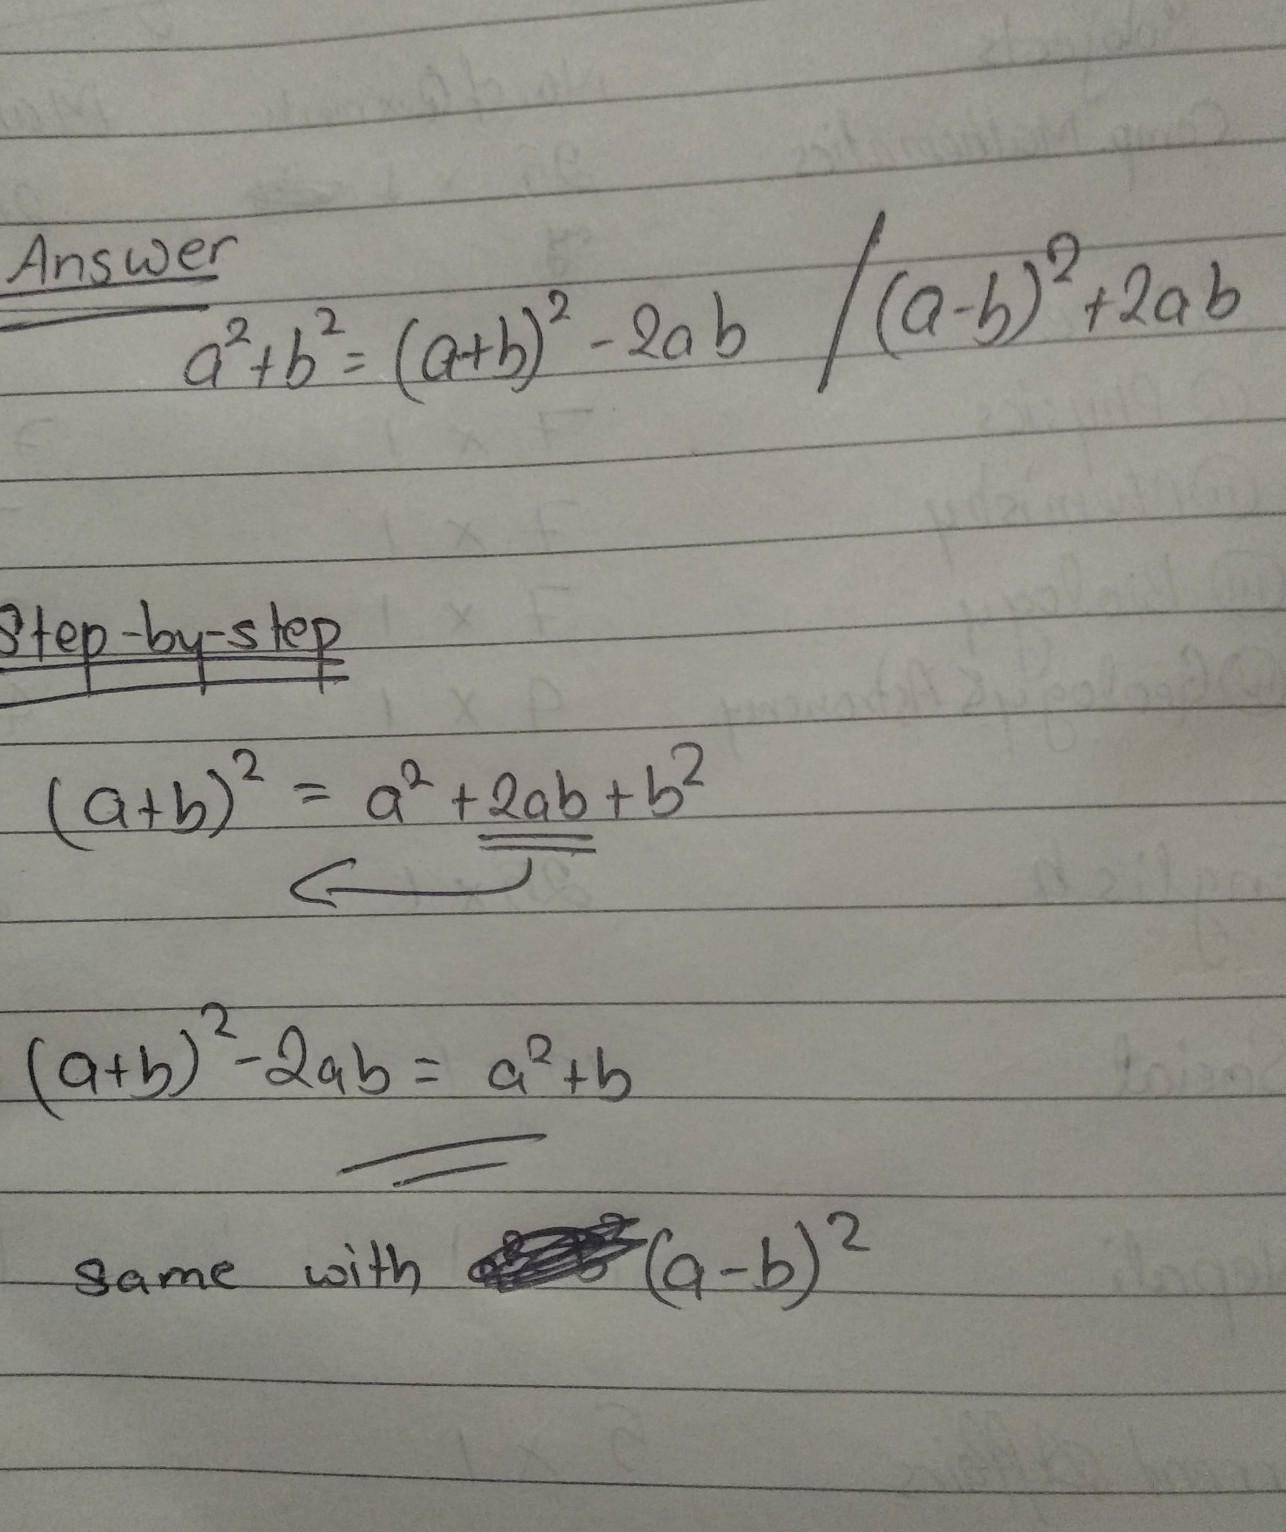 Answer
a²+b²= (a+b)² - 2ab / (a-b)² +2ab
Step-by-step
(a+b)² = a² + 2ab + b²
(a+b)² - 2ab = a²+b
same with (a-b)²